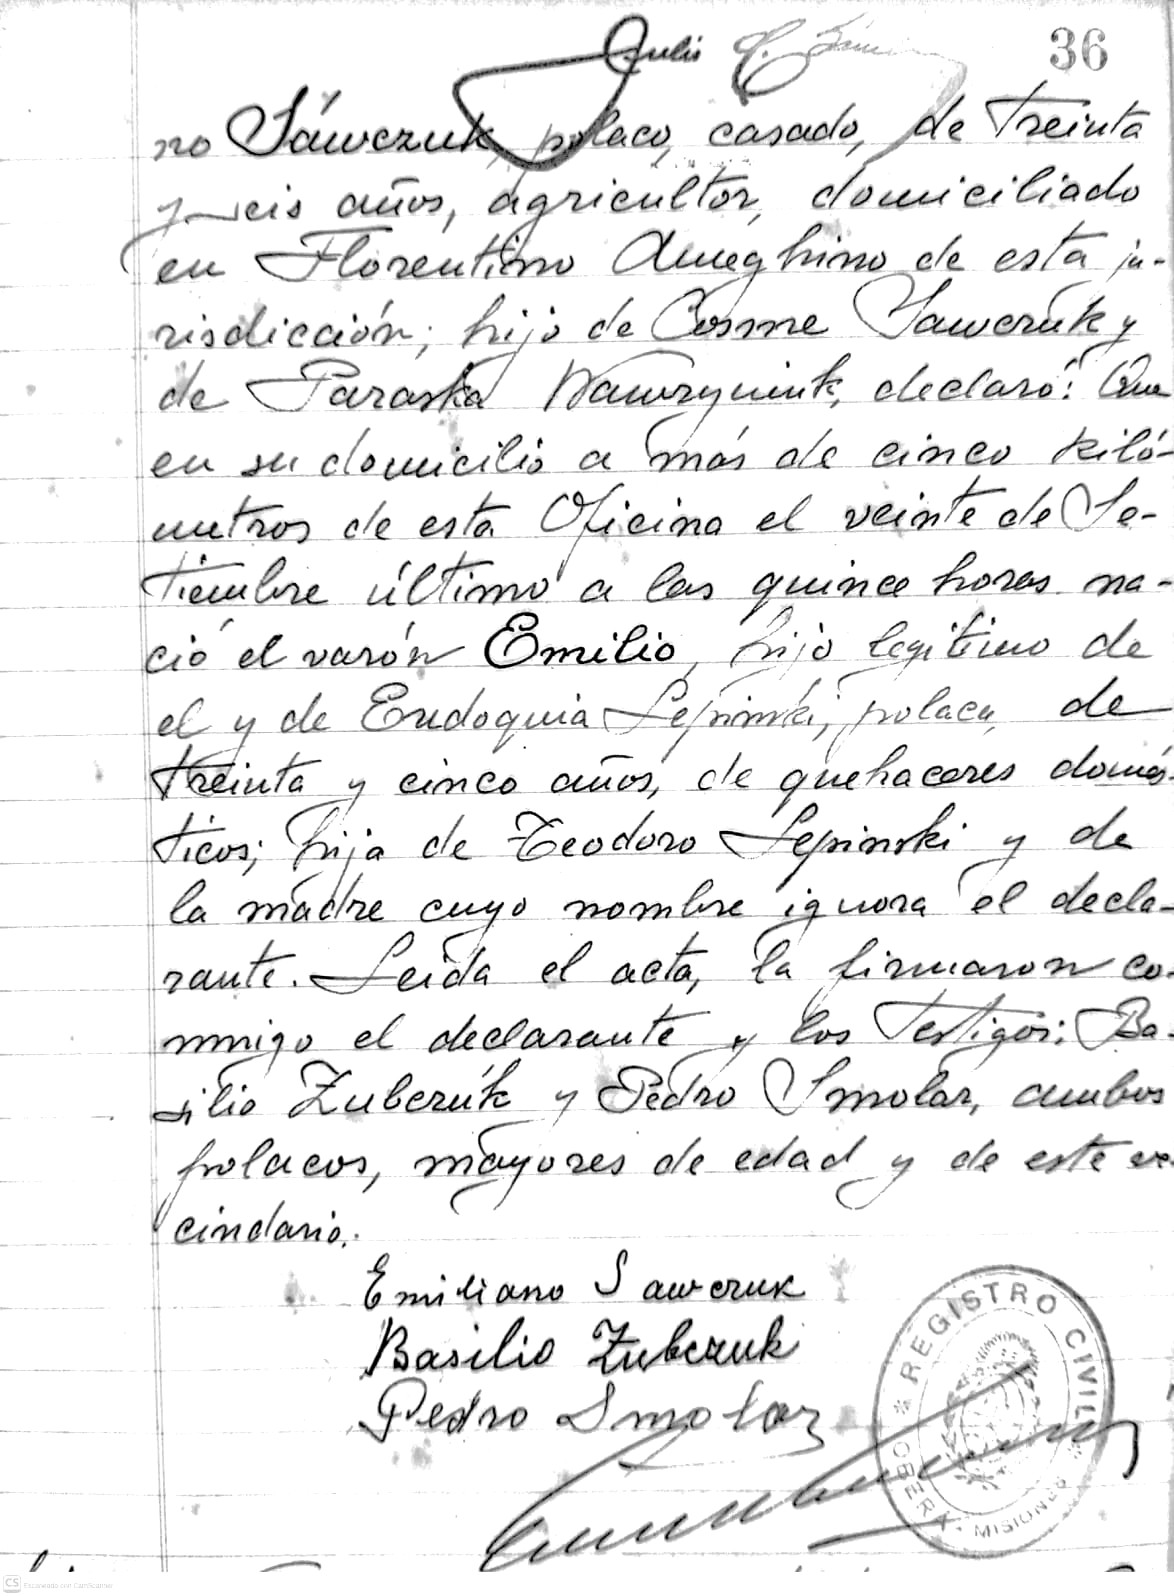 36
no Sáwczuk, polaco, casado, de treinta
y seis años, agricultor, domiciliado
en Florentino Ameghino de esta ju-
risdicción; hijo de Cosme Sawczuk y
de Paraska Wawryniuk, declaró: Que
en su domicilio a más de cinco kiló-
metros de esta Oficina el veinte de Se-
tiembre último a las quince horas na-
ció el varón Emilio, hijo legítimo de
el y de Eudoquia Lepinski, polaca, de
treinta y cinco años, de quehaceres domés-
ticos; hija de Teodoro Lepinski y de
la madre cuyo nombre ignora el decla-
rante. Leida el acta, la firmaron co-
nmigo el declarante y los testigos: Ba-
silio Zubczúk y Pedro Smolar, ambos
polacos, mayores de edad y de este ve-
cindario.
Emiliano Sawczuk
Basilio Zubczuk
Pedro Smolar
REGISTRO CIVIL
OBERA - MISIONES
CS Escaneado con CamScanner